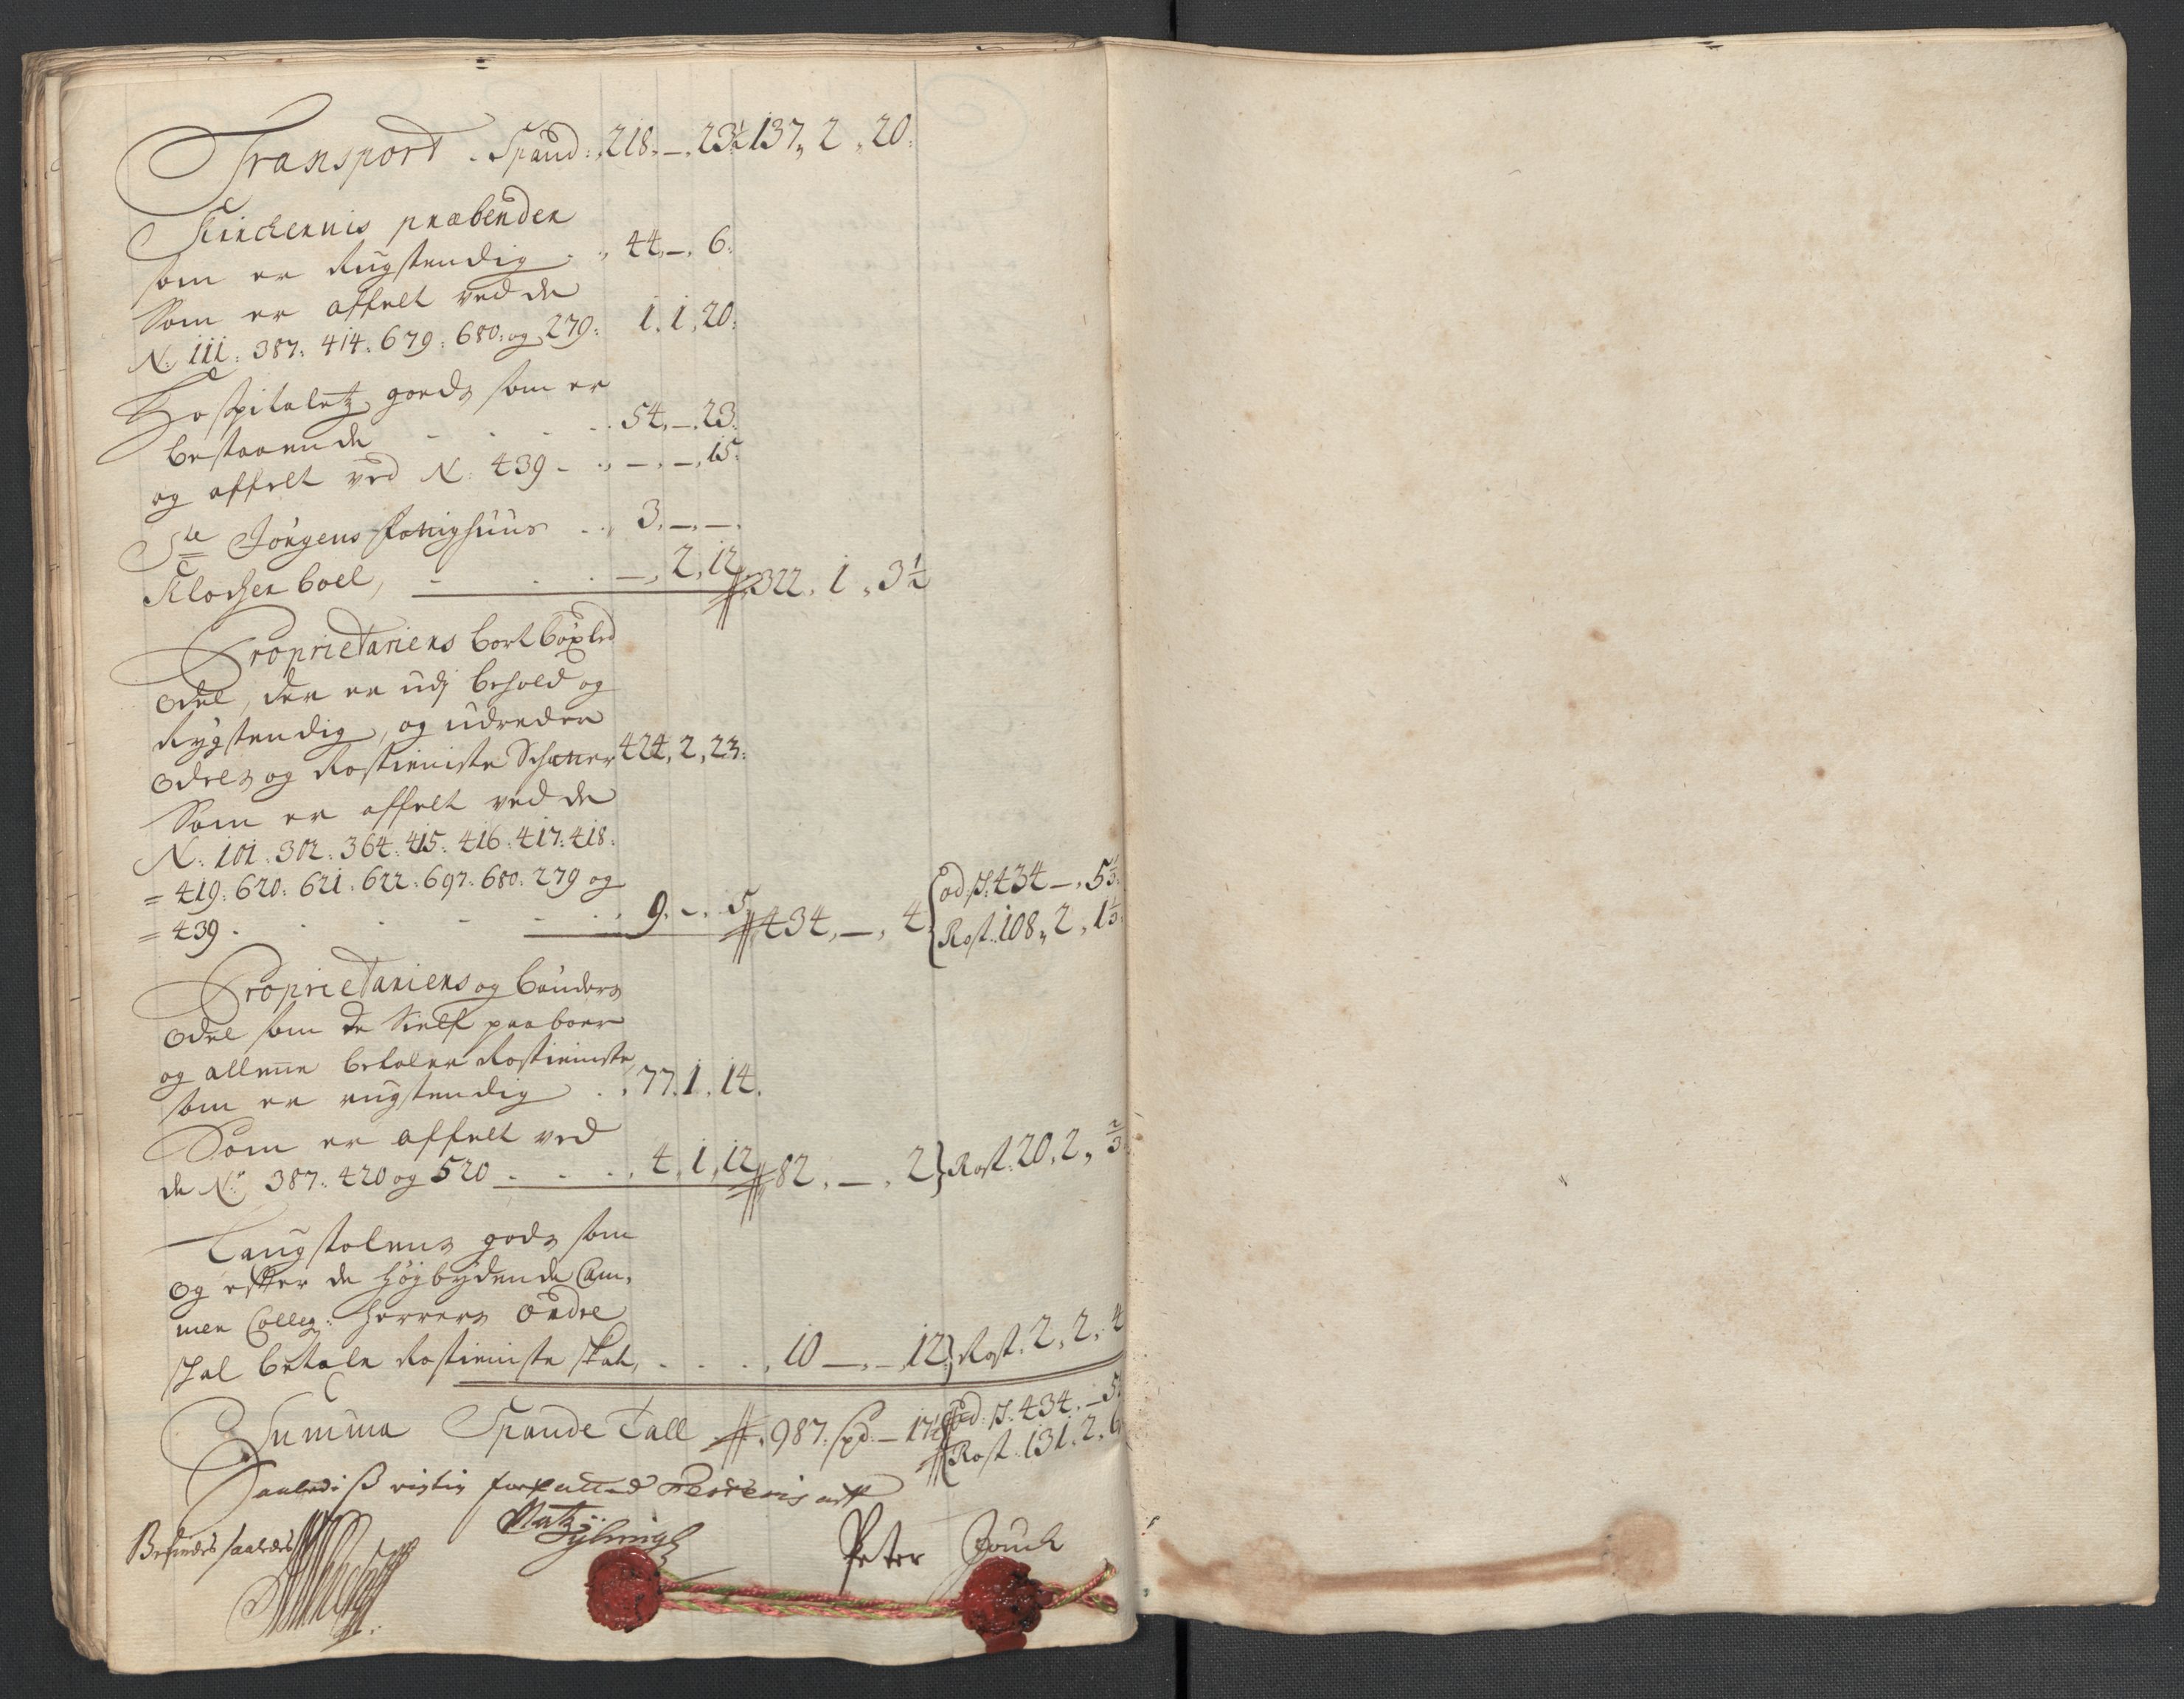 Transport . Spand : 218 . — . 23½ 137 „ 2 „ 20 :
Kirckernis præbender
som er Rugstendig . „ 44 , — . 6 :
Som er affelt ved de
N: 111 : 387 : 414 : 679 : 680 : og 279 : 1 . 1 , 20 :
Hospitaletz goeds som er
bestaaende - - - . 54 , — , 23 :
og affelt ved N: 439 - . , — , — , 15 :
Ste Jørgens Fattighuus . . 3 , — , — .
Klocker boel , - . . — , 2 , 12 „ 322 . 1 „ 3½
Proprietariens bortbøxled
Odel , der er udj behold og
Rygstendig , og udreder
Odels og Rostieniste Schatter 424 , 2 , 23 :
Som er affelt ved de
N: 101 : 302 : 364 : 415 : 416 : 417 : 418 :
= 419 : 620 : 621 : 622 : 697 : 680 : 279 og
= 439 . - - - . 9 . - . 5 „ 434 , — , 4 { od: S. 434 — , 5⅓ :
Rost. 108 „ 2 , 1⅓ :
Proprietariens og bønders
Odel som de Sielf paaboer
og allene betaler Rostieniste
som er rugstendig . . 77 . 1 . 14 .
Som er affelt ved
de No 387 : 420 og 520 - - . . 4 , 1 , 12 „ 82 , — . 2 } Rost: 20 , 2 „ ⅔
Laugstolens gods som
og efter de høybydende Cam,
mer Colleg: herrers ordre
skal betale Rostieniste skat , . . . , 10 — , — , 12 } Rost . 2 , 2 , 4
Summa Spande Tall . 987 : spd . — 17½ { od: S. 434 . — 5⅓
Rost . 131 . 2 . 6
Saaledis rigtig
Befindes saaledes
Peter